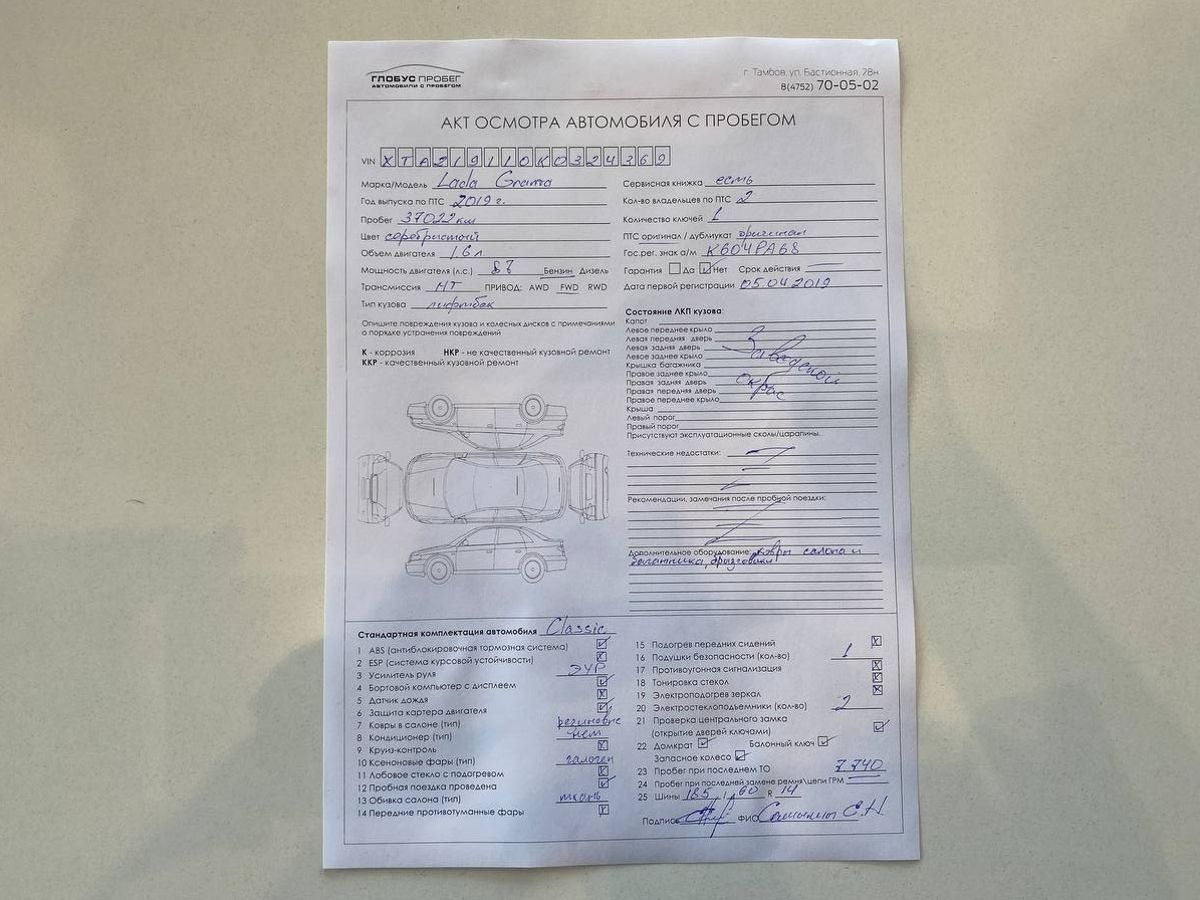 ГЛОБУС ПРОБЕГ
АВТОМОБИЛИ С ПРОБЕГОМ
г. Тамбов, ул. Бастионная, 28н
8(4752) 70-05-02
АКТ ОСМОТРА АВТОМОБИЛЯ С ПРОБЕГОМ
VIN XTA219110K0324369
Марка/Модель Lada Granta
Год выпуска по ПТС 2019 г.
Пробег 37022 км
Цвет серебристый
Объем двигателя 1,6 л
Мощность двигателя (л.с.) 87 Бензин Дизель
Трансмиссия МТ ПРИВОД: AWD FWD RWD
Тип кузова лифтбек
Сервисная книжка есть
Кол-во владельцев по ПТС 2
Количество ключей 1
ПТС оригинал / дубликат оригинал
Гос.рег. знак а/м К604РА68
Гарантия Да Нет Срок действия
Дата первой регистрации 05.04.2019
Опишите повреждения кузова и колесных дисков с примечаниями
о порядке устранения повреждений
К - коррозия НКР - не качественный кузовной ремонт
ККР - качественный кузовной ремонт
Состояние ЛКП кузова:
Капот
Левое переднее крыло
Левая передняя дверь
Левая задняя дверь
Левое заднее крыло
Крышка багажника
Правое заднее крыло
Правая задняя дверь
Правая передняя дверь
Правое переднее крыло
Крыша
Левый порог
Правый порог
Заводской
окрас
Присутствуют эксплуатационные сколы/царапины.
Технические недостатки:
Рекомендации, замечания после пробной поездки:
Дополнительное оборудование: ковры салона и
багажника, брызговики
Стандартная комплектация автомобиля Classic
1 ABS (антиблокировочная тормозная система)
2 ESP (система курсовой устойчивости)
3 Усилитель руля ЭУР
4 Бортовой компьютер с дисплеем
5 Датчик дождя
6 Защита картера двигателя
7 Ковры в салоне (тип) резиновые
8 Кондиционер (тип) нет
9 Круиз-контроль
10 Ксеноновые фары (тип) галоген
11 Лобовое стекло с подогревом
12 Пробная поездка проведена
13 Обивка салона (тип) ткань
14 Передние противотуманные фары
15 Подогрев передних сидений
16 Подушки безопасности (кол-во) 1
17 Противоугонная сигнализация
18 Тонировка стекол
19 Электроподогрев зеркал
20 Электростеклоподъемники (кол-во) 2
21 Проверка центрального замка
(открытие дверей ключами)
22 Домкрат Балонный ключ
Запасное колесо
23 Пробег при последнем ТО 7740
24 Пробег при последней замене ремня\цепи ГРМ
25 Шины 185 / 60 R 14
Подпись ФИО С.Н